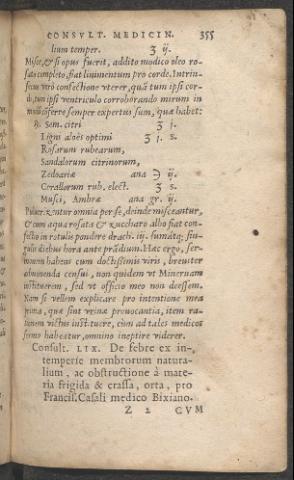 CONSULT. MEDICIN. 355
lium temper. ʒ ij.
Misce, & si opus fuerit, addito modico oleo ro-
sato completo, fiat linimentum pro corde. Intrin-
secus verò confectione vterer, quã tum ipsi cor-
di, tum ipsi ventriculo corroborando mirum in
modũ cõferre semper expertus sum, quæ habet:
℞. Sem. citri ʒ j.
Ligni aloës optimi ʒ j. s.
Rosarum rubearum,
Sandalorum citrinorum,
Zedoariæ ana ℈ ij.
Corallorum rub. elect. ʒ s.
Musci, Ambræ ana gr. ij.
Puluerizentur omnia per se, deinde misceantur,
& cum aqua rosata & zuccharo albo fiat con-
fectio in rotulis pondere drach. iij. sumãtq; sin-
gulis diebus hora ante prãdium. Hæc ergo, ser-
monem habens cum doctissimis viris, breuiter
obmouenda censui, non quidem vt Mineruam
instituerem, sed vt officio meo non deessem.
Nam si vellem explicare pro intentione mea
prima, quæ sint vrinæ prouocantia, item ra-
tionem victus instituere, cùm ad tales medicos
sermo habeatur, omnino ineptire viderer.
Consult. LIX. De febre ex in-
temperie membrorum natura-
lium, ac obstructione à mate-
ria frigida & crassa, orta, pro
Francisc. Casali medico Bixiano.
Z 2 CVM